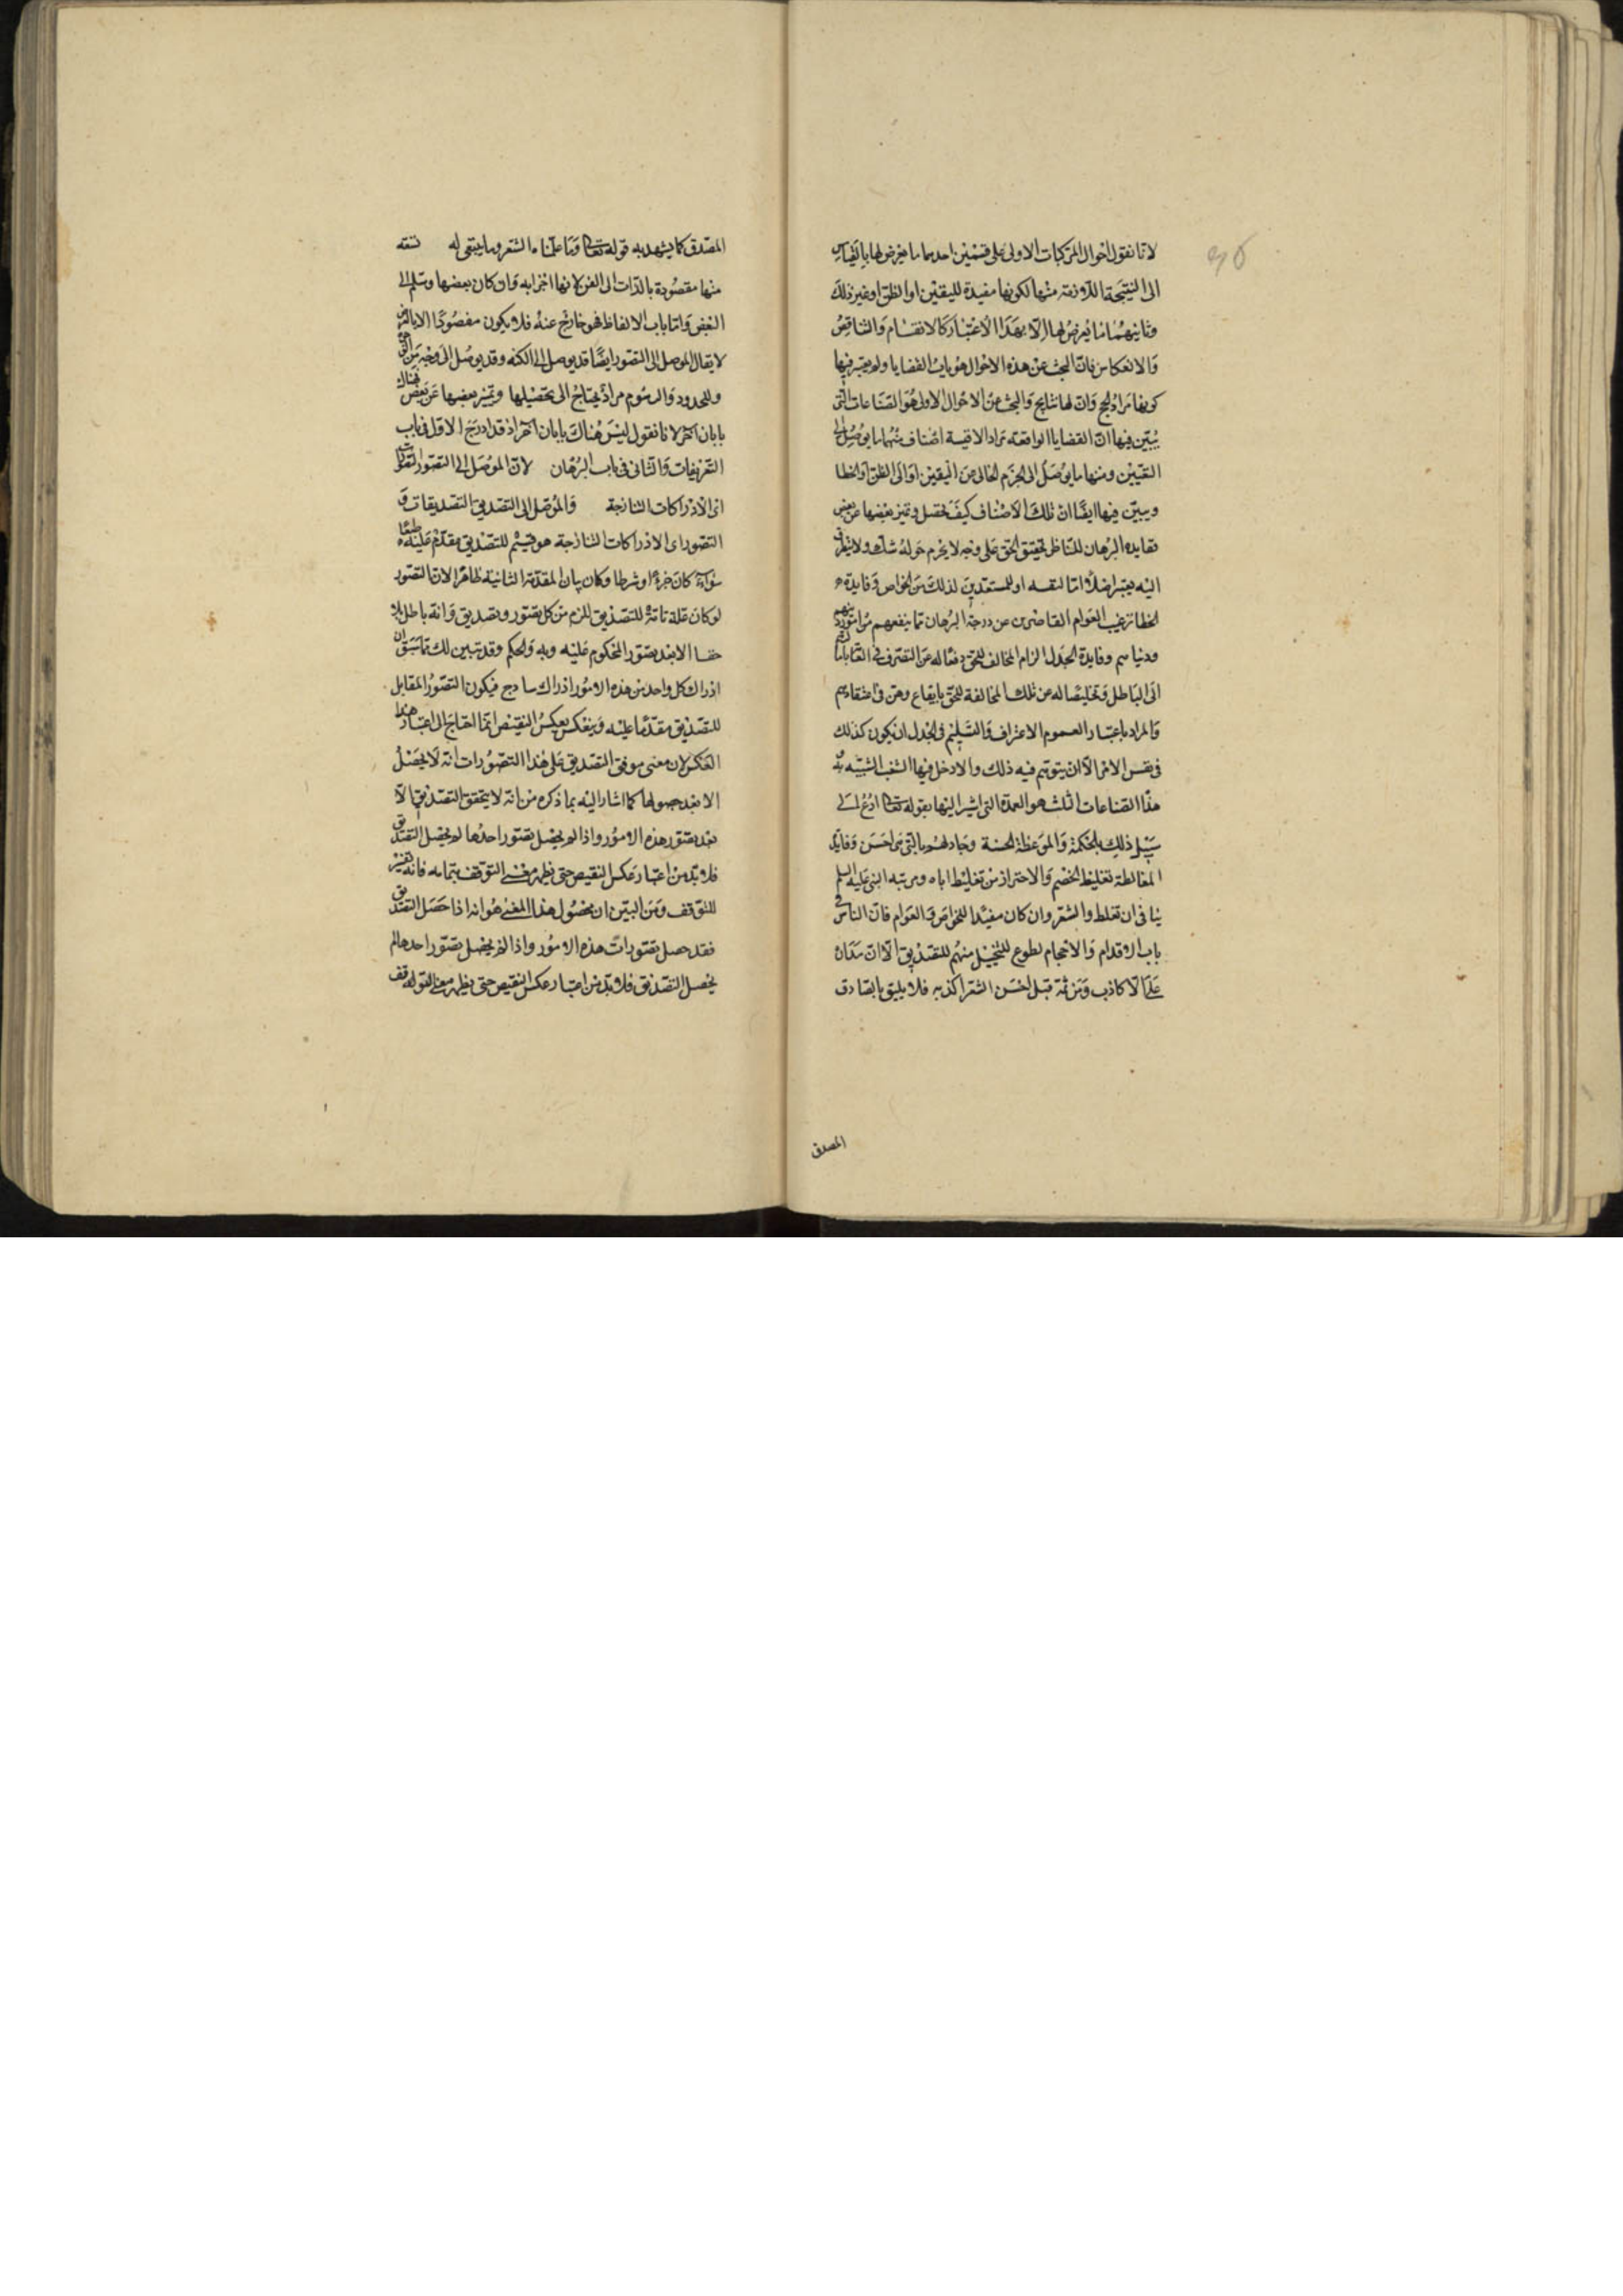 لانا نقول احوال المركبات الاولى على قسمين احدهما ما يعرض لها بالقياس
الى النتيجة اللازمة منها لكونها مفيدة لليقين او الظن او غير ذلك
وثانيهما ما يعرض لها لا بهذا الاعتبار كالانقسام والتناقض
والانعكاس فان البحث عن هذه الاحوال هو باب القضايا ولم يعتبر فيها
كونها مواد لحجج وان لها نتايج والبحث عن الاحوال الاولى هو الصناعات التي
يبين فيها ان القضايا الواقعة مواد الاقيسة اصناف منها ما يوصل الى
اليقين ومنها ما يوصل الى الجزم الخالي عن اليقين او الى الظن او الخطا
ويبين فيها ايضا ان تلك الاصناف كيف تحصل وتميز بعضها عن بعض
ففايدة البرهان للناظر تحقيق الحق على وجه لا يحرم حوله شك ولا يتطرق
اليه تغير اصلا اما لنفسه او للمستعدين لذلك من الخواص وفايدة
الخطا ترغيب العوام القاصرين عن درجة البرهان فيما ينفعهم من امور دينهم
ودنياهم وفايدة الجدل الزام المخالف للحق دفعا له عن التصرف في
الى الباطل وتخليصا له عن تلك المخالفة للحق بايقاع وهن في اعتقادهم
والمراد باعتبار العموم الاعتراف والتسليم في الجدل ان يكون كذلك
في نفس الامر الا ان يتوهم فيه ذلك والا دخل فيها الشغب الشبيه به
هذا الصناعات الثلث هو العمدة التي اشير اليها بقوله تعالى ادع الى
سبيل ذلك بالحكمة والموعظة الحسنة وجادلهم بالتي هي احسن وفايدة
المغالطة تغليط الخصم والاحتراز من تغليط اياه ومرتبه النبي عليه السلم
ينافي ان تغلط والشعر وان كان مفيدا للخواص والعوام فان الناس في
باب الاقدام والاحجام اطوع للتخييل منهم للتصديق الا ان مداره
على الاكاذب ومن ثمة قيل احسن الشعر اكذبه فلا يليق بالصادق
المصدق
المصدق كما يشهد به قوله تعالى وما علمناه الشعر وما ينبغي له
منها مقصودة بالذات الى الفن لانها اجزا به وان كان بعضها وسلم الى
البعض واما باب الالفاظ فهو خارج عنه فلا يكون مقصودا الا بالعرض
لا يقال الموصل الى التصور ايضا قد يوصل الى الكنه وقد يوصل الى وجه من
وللحدود والرسوم مواد يحتاج الى تحصيلها وتميز بعضها عن بعض فهناك
بابان اخر لانا نقول ليس هناك بابان اخر اذ قد ادرج الاول في باب
التعريفات والثاني في باب البرهان لان الموصل الى التصور التصورات
اى الادراكات الساذجة والموصل الى التصديق التصديقات و
التصور اى الادراكات الساذجة هو قسيم للتصديق مقدم عليه طبعا
سواء كان جزءا او شرطا وكان بيان المقدمة الثانية ظاهرا لان التصور
لو كان علة تامة للتصديق للزم من كل تصور وتصديق وانه باطل
الا بعد تصور المحكوم عليه وبه والحكم وقد تبين لك مما سبق ان
ادراك كل واحد من هذه الامور ادراك ساذج فيكون التصور المقابل
للتصديق مقدما عليه وينعكس بعكس النقيض انما احتاج الى اعتبار هذا
العكس لان معنى موقف التصديق على هذا التصورات انه لا يحصل
الا بعد حصولها كما اشار اليه بما ذكره من انه لا يتحقق التصديق الا
بعد تصور هذه الامور واذا لم يحصل تصور احدها لم يحصل التصديق
فلا بد من اعتبار عكس النقيض حتى يظهر معنى التوقف بتمامه فانه تفسير
للتوقف ومن البين ان محصول هذا المعنى هو انه اذا حصل التصديق
فقد حصل تصورات هذه الامور واذا لم يحصل تصور احدها لم
يحصل التصديق فلا بد من اعتبار عكس النقيض حتى يظهر معنى التوقف